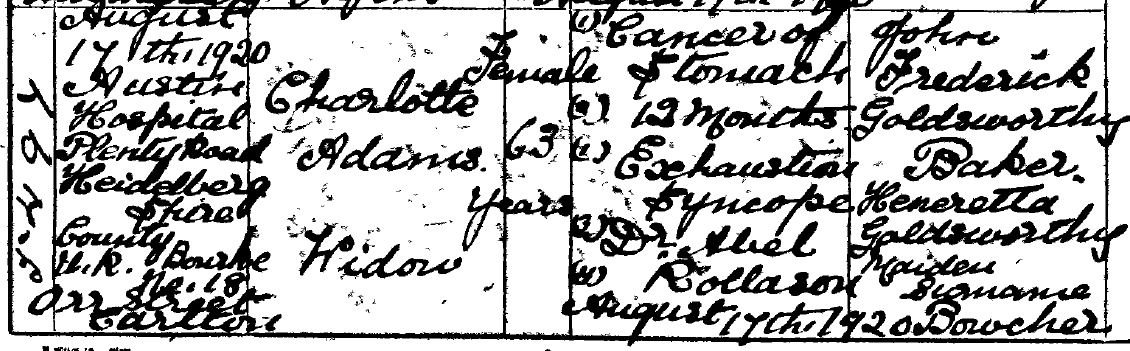 August
17th. 1920
Austin
Hospital
Plenty Road
Heidelberg
Shire
County
U.K. Bourke
No. 18
Orr Street
Carlton
Charlotte
Adams.
Widow
Female
63
Years
(1) Cancer of
Stomach
(2) 12 Months
(1) Exhaustion
Syncope
(3) Dr. Abel
Rollason
(4)
August 17th. 1920
John
Frederick
Goldsworthy
Baker.
Heneretta
Goldsworthy
Maiden
Surname
Bowcher.